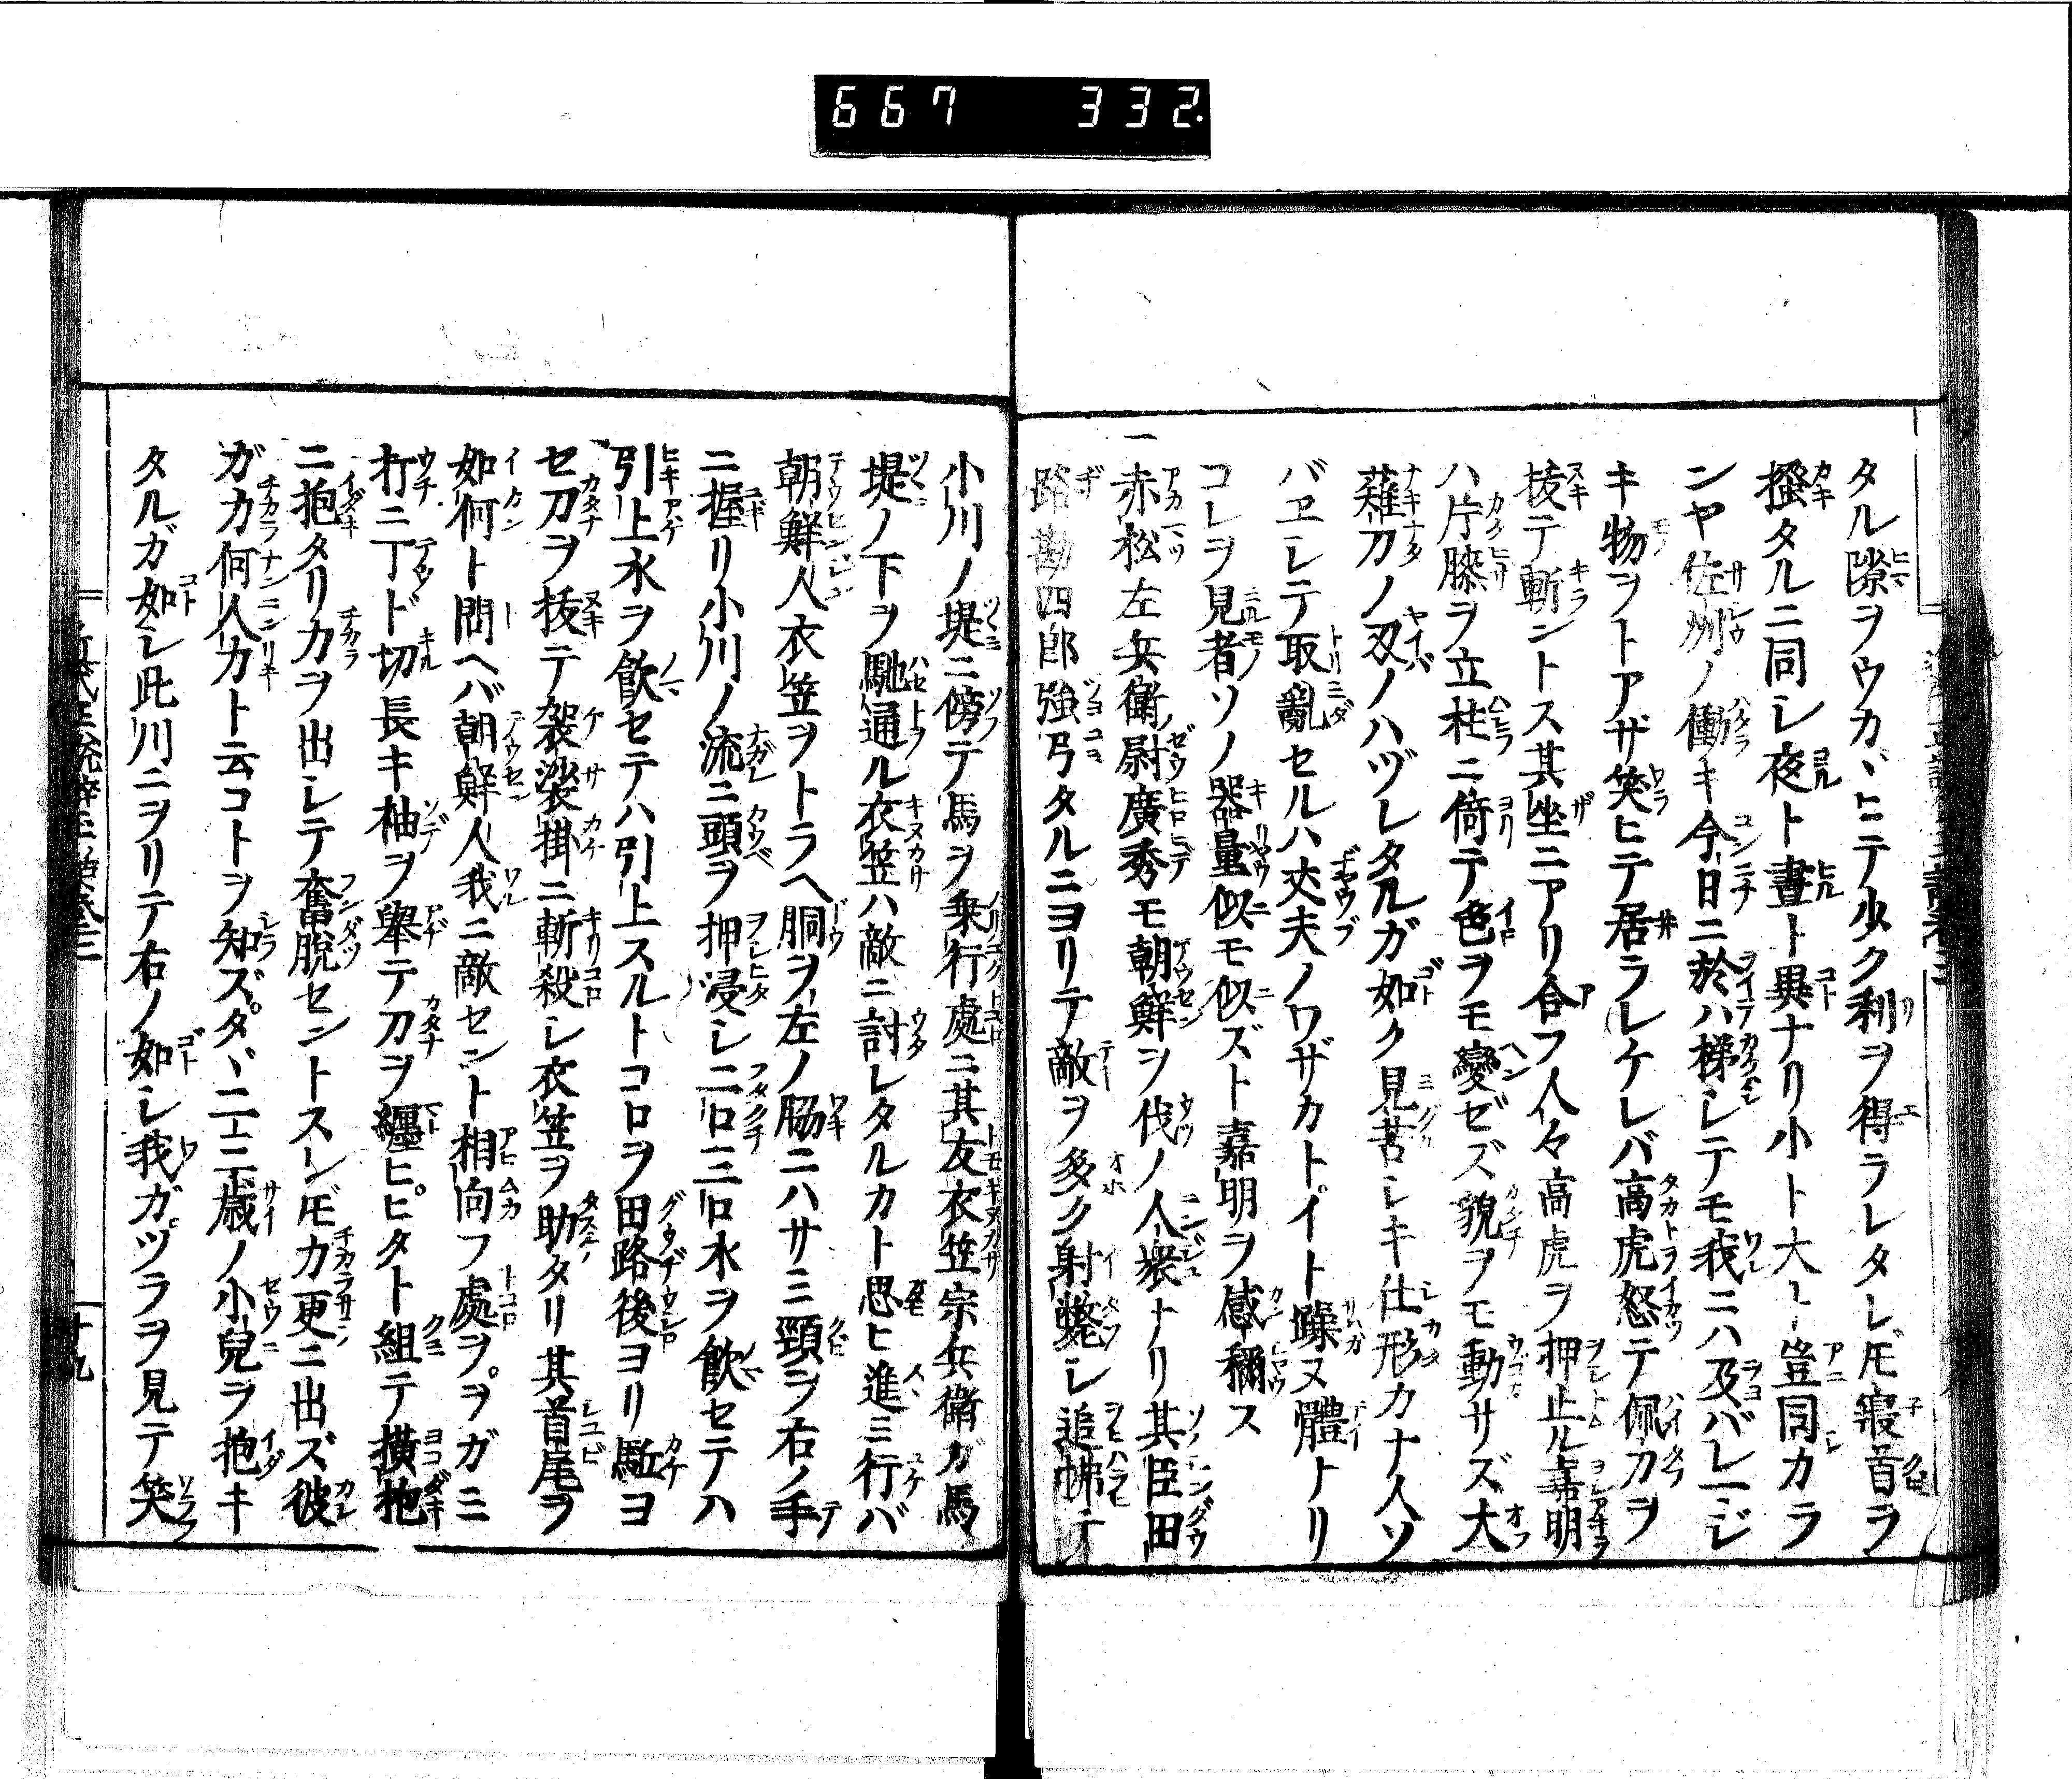 667 332
タル隙ヲウカヾヒニテ少ク利ヲ得ラレタレ𪜈寢首ヲ
掻タルニ同シ夜ト晝ト異ナリ小ト大ト豈同カラ
ンヤ佐州ノ働キ今日ニ於ハ梯シテモ我ニハ及バレージ
キ物ヲトアザ笑ヒテ居ラレケレバ高虎怒テ佩刀ヲ
拔テ斬ントス其坐ニアリ合フ人々高虎ヲ押止ル嘉明
ハ片膝ヲ立柱ニ倚テ色ヲモ變ゼズ貌ヲモ動サズ大
薙刀ノ刄ノハヅレタルガ如ク見苦シキ仕形カナ人ソ
バヱシテ取亂セルハ丈夫ノワザカトイト躁ヌ體ナリ
コレヲ見者ソノ器量似モ似ズト嘉明ヲ感稱ス
一赤松左兵衛尉廣秀モ朝鮮ヲ伐ノ人衆ナリ其臣田
路勘四郎強弓タルニヨリテ敵ヲ多ク射斃シ追拂テ
小川ノ堤ニ傍テ馬ヲ乗行處ニ其友衣笠宗兵衛ガ馬
堤ノ下ヲ馳通ル衣笠ハ敵ニ討レタルカト思ヒ進ミ行バ
朝鮮人衣笠ヲトラヘ胴ヲ左ノ脇ニハサミ頸ヲ右ノ手
ニ握リ小川ノ流ニ頭ヲ押浸シ二口三口水ヲ飲セテハ
引上水ヲ飲セテハ引上スルトコロヲ田路後ヨリ駈ヨ
セ刀ヲ拔テ袈裟掛ニ斬殺シ衣笠ヲ助タリ其首尾ヲ
如何ト問ヘバ朝鮮人我ニ敵セント相向フ處ヲヲガニ
打ニ丁ド切長キ袖ヲ舉テ刀ヲ纒ヒヒタト組テ横抱
ニ抱タリカヲ出シテ奮脱セントスレ𪜈力更ニ出ズ彼
ガ力何人力ト云コトヲ知ズタヾ二三歳ノ小兒ヲ抱キ
タルガ如シ此川ニヲリテ右ノ如シ我ガツラヲ見テ笑
十九